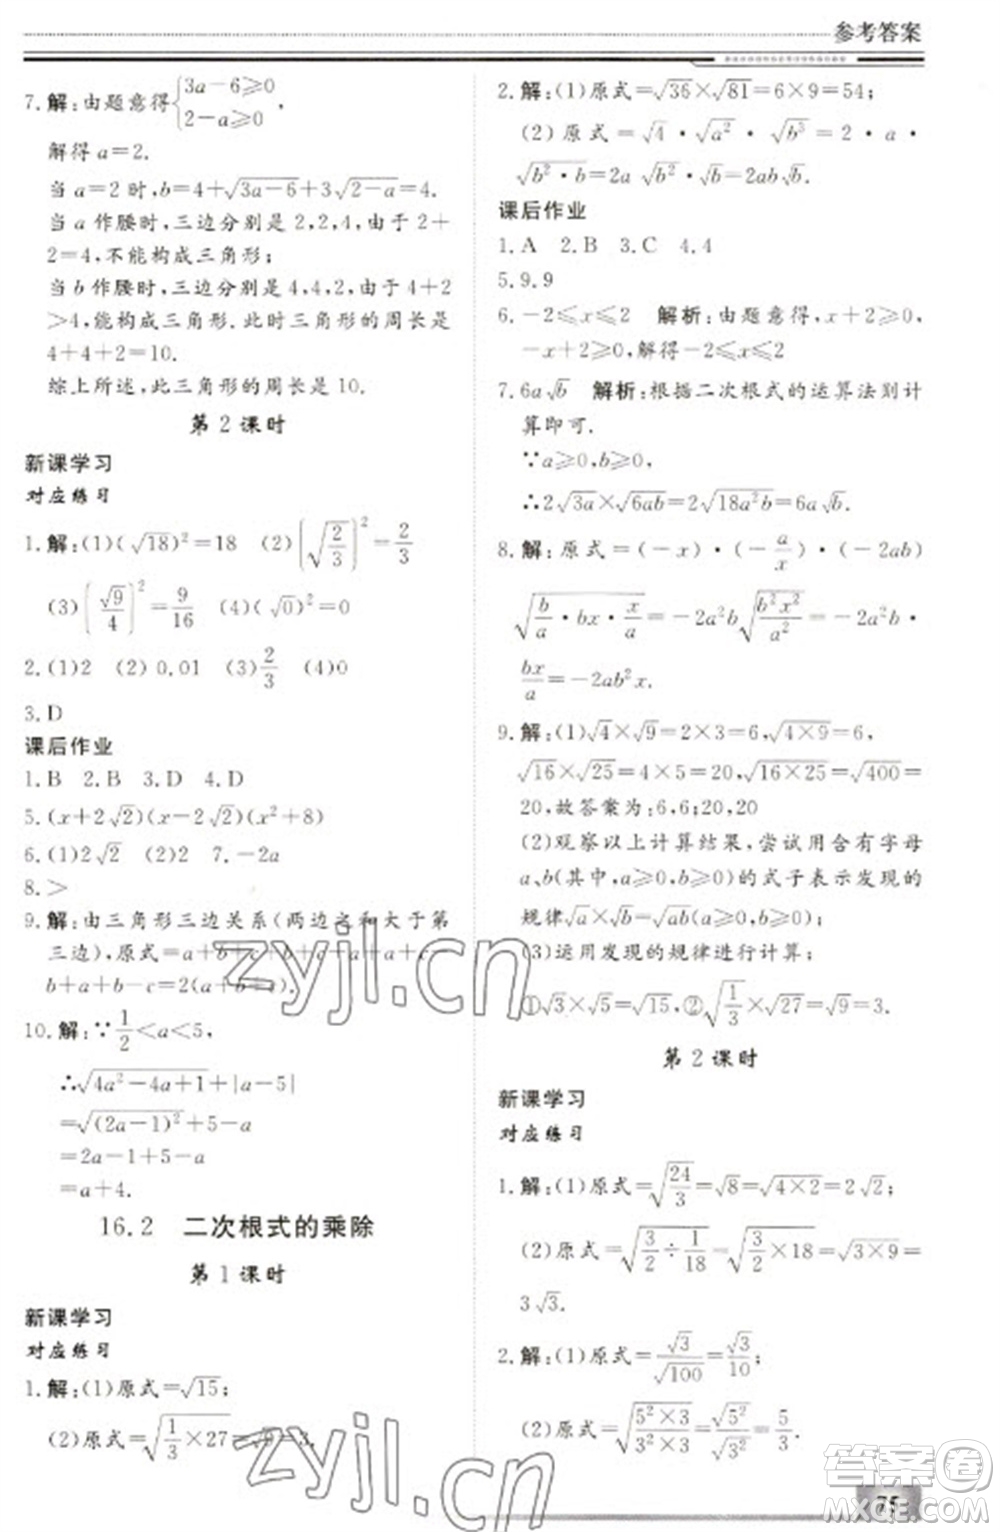 参考答案
7.解:由题意得{3a-6⩾0, 2-a⩾0,
解得 a=2.
当 a=2 时,b=4+√(3a-6)+3√(2-a)=4.
当 a 作腰时,三边分别是 2,2,4,由于 2+
2=4,不能构成三角形;
当 b 作腰时,三边分别是 4,4,2,由于 4+2
>4,能构成三角形.此时三角形的周长是
4+4+2=10.
综上所述,此三角形的周长是 10.
第 2 课时
新课学习
对应练习
1.解:(1)(√18)²=18 (2)(√(2/3))²=2/3
(3)(√9/4)²=9/16 (4)(√0)²=0
2.(1)2 (2)0.01 (3)2/3 (4)0
3.D
课后作业
1.B 2.B 3.D 4.D
5.(x+2√2)(x-2√2)(x²+8)
6.(1)2√2 (2)2 7.-2a
8.>
9.解:由三角形三边关系(两边之和大于第
三边),原式=a+b+c+b+c+a+a+
b+a+b-c=2(a+b+c).
10.解:∵1/2<a<5,
∴√(4a²-4a+1)+|a-5|
=√((2a-1)²)+5-a
=2a-1+5-a
=a+4.
16.2 二次根式的乘除
第 1 课时
新课学习
对应练习
1.解:(1)原式=√15;
(2)原式=√(1/3×27)=√9=3.
2.解:(1)原式=√36×√81=6×9=54;
(2)原式=√4·√a²·√b³=2·a·
√(b²·b)=2a√b²·√b=2ab√b.
课后作业
1.A 2.B 3.C 4.4
5.9.9
6.-2⩽x⩽2 解析:由题意得,x+2⩾0,
-x+2⩾0,解得-2⩽x⩽2
7.6a√b 解析:根据二次根式的运算法则计
算即可.
∵a⩾0,b⩾0,
∴2√3a×√6ab=2√(18a²b)=6a√b.
8.解:原式=(-x)·(-a/x)·(-2ab)
√(b/a·bx·x/a)=-2a²b√(b²x²/a²)=-2a²b·
bx/a=-2ab²x.
9.解:(1)√4×√9=2×3=6,√(4×9)=6,
√16×√25=4×5=20,√(16×25)=√400=
20,故答案为:6,6;20,20
(2)观察以上计算结果,尝试用含有字母
a、b(其中,a⩾0,b⩾0)的式子表示发现的
规律√a×√b=√ab(a⩾0,b⩾0)
(3)运用发现的规律进行计算:
①√3×√5=√15,②√(1/3)×√27=√9=3.
第 2 课时
新课学习
对应练习
1.解:(1)原式=√(24/3)=√8=√(4×2)=2√2;
(2)原式=√(3/2÷1/18)=√(3/2×18)=√(3×9)=
3√3.
2.解:(1)原式=√3/√100=√3/10;
(2)原式=√((5²×3)/(3²×3))=√5²/√3²=5/3.
75
zyjl.cn
zyjl.cn
答案圈
MXQE.COM